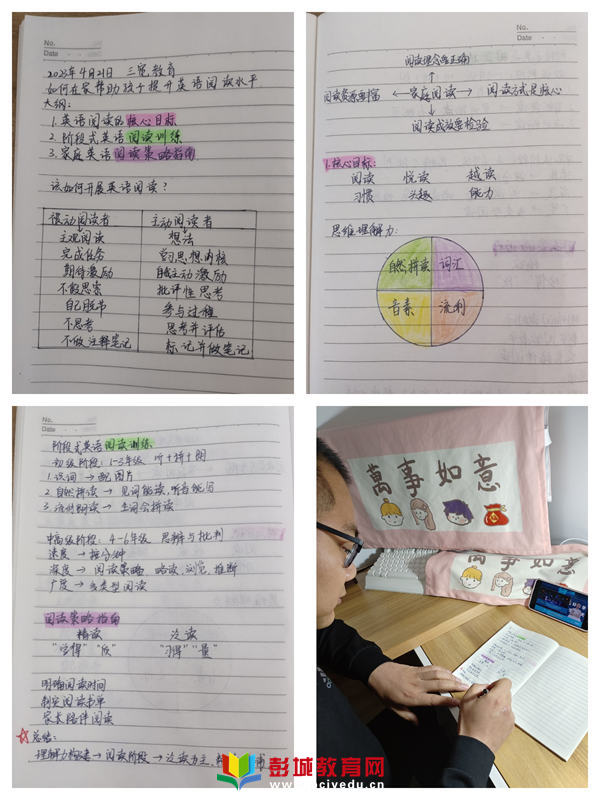 No.
Date
2023年4月21日 三宽教育
如何在家帮助孩子提升英语阅读水平
大纲:
1.英语阅读的核心目标
2.阶段式英语阅读训练
3.家庭英语阅读策略指南
该如何开展英语阅读?
被动阅读者 主动阅读者
主观阅读 想法
完成任务 思想内核
期待激励 自我主动激励
不假思索 批评性思考
自己脱节 参与过程
不思考 思考并评估
不做注释笔记 标记并做笔记
No.
Date
阅读理念要正确
阅读资源要丰富 ← 家庭阅读 → 阅读方式是核心
阅读成效要检验
1.核心目标:
阅读 悦读 越读
习惯 兴趣 能力
思维理解力:
自然拼读 词汇
音素 流利
No.
Date
阶段式英语阅读训练
初级阶段:1-3年级 听+拼+图
1.识词 → 配图片
2.自然拼读 → 见词能读,听音能写
3.流利朗读 → 生词会拼读
中高级阶段:4-6年级 思辨与批判
速度 → 按分钟
深度 → 阅读策略 略读,浏览,推断
广度 → 多类型阅读
阅读策略指南
精读 泛读
"学得" "质" "习得" "量"
明确阅读时间
制定阅读书单
家长陪伴阅读
☆总结:
理解力构建 → 阅读阶段 → 泛读为主,
萬事如意
萬事如意
彭城教育网